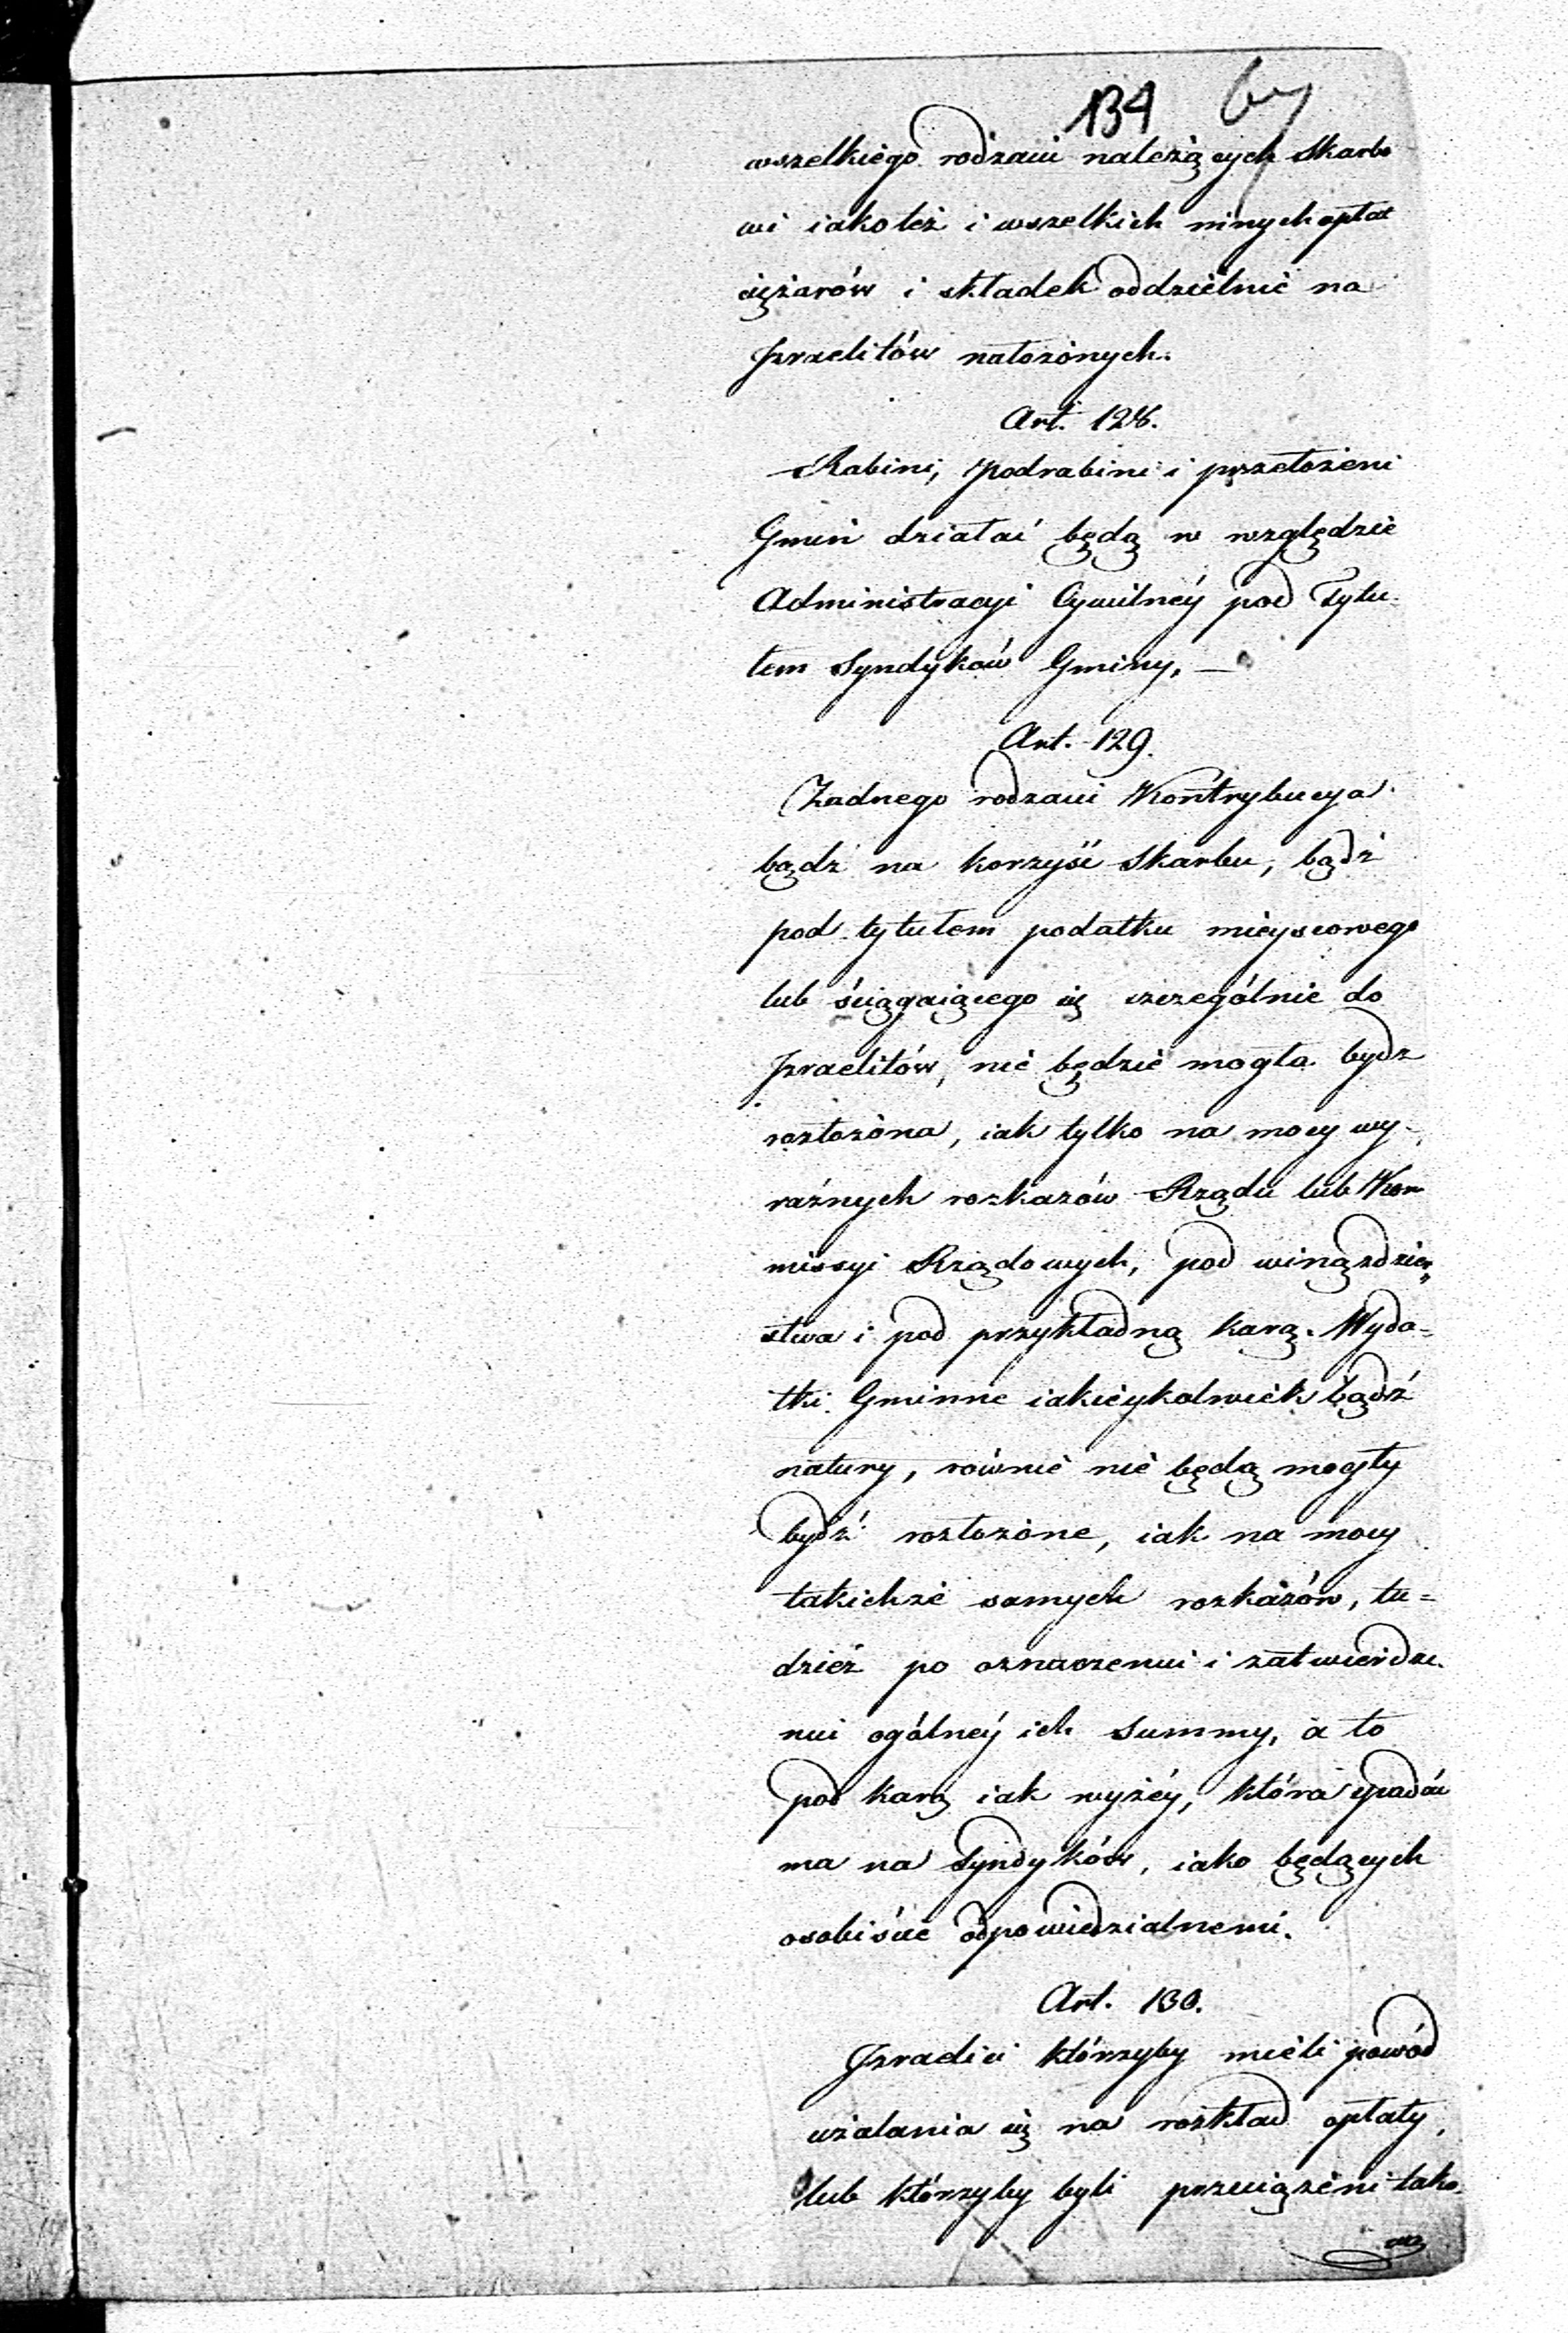 134
wszelkiego rodzaiu należących Skarbo
wi iako też i wszelkich innych opłat
ciężarów i składek oddzielnie na
Izraelitów nałożonych.
Art. 128.
Rabini, Podrabini i przełożeni
Gmin działać będą w względzie
Administracyi Cywilnéy pod Tytu-
łem Syndyków Gminy. —
Art. 129.
Żadnego rodzaiu Kontrybucya
bądź na korzyść Skarbu, bądź
pod tytułem podatku mieyscowego
lub ściągaiącego się szczególnie do
Izraelitów, nie będzie mogła bydz
rozłożona, iak tylko na mocy wy-
raźnych rozkazów Rządu lub Kom
missyi Rządowych, pod winą zdzier„
stwa i pod przykładną karą. Wyda=
tki Gminne iakieykolwiek bądź
natury, równie nie będą mogły
bydź rozłożone, iak na mocy
takichże samych rozkazów, tu=
dzież po oznaczeniu i zatwierdze-
niu ogólnéy ich Summy, a to
pod karą iak wyżéy, która spadać
ma na Syndyków, iako będących
osobiście odpowiedzialnemi.
Art. 130.
Izraelici którzyby mieli powód
użalania się na rozkład opłaty,
lub którzyby byli przeciążeni tako-